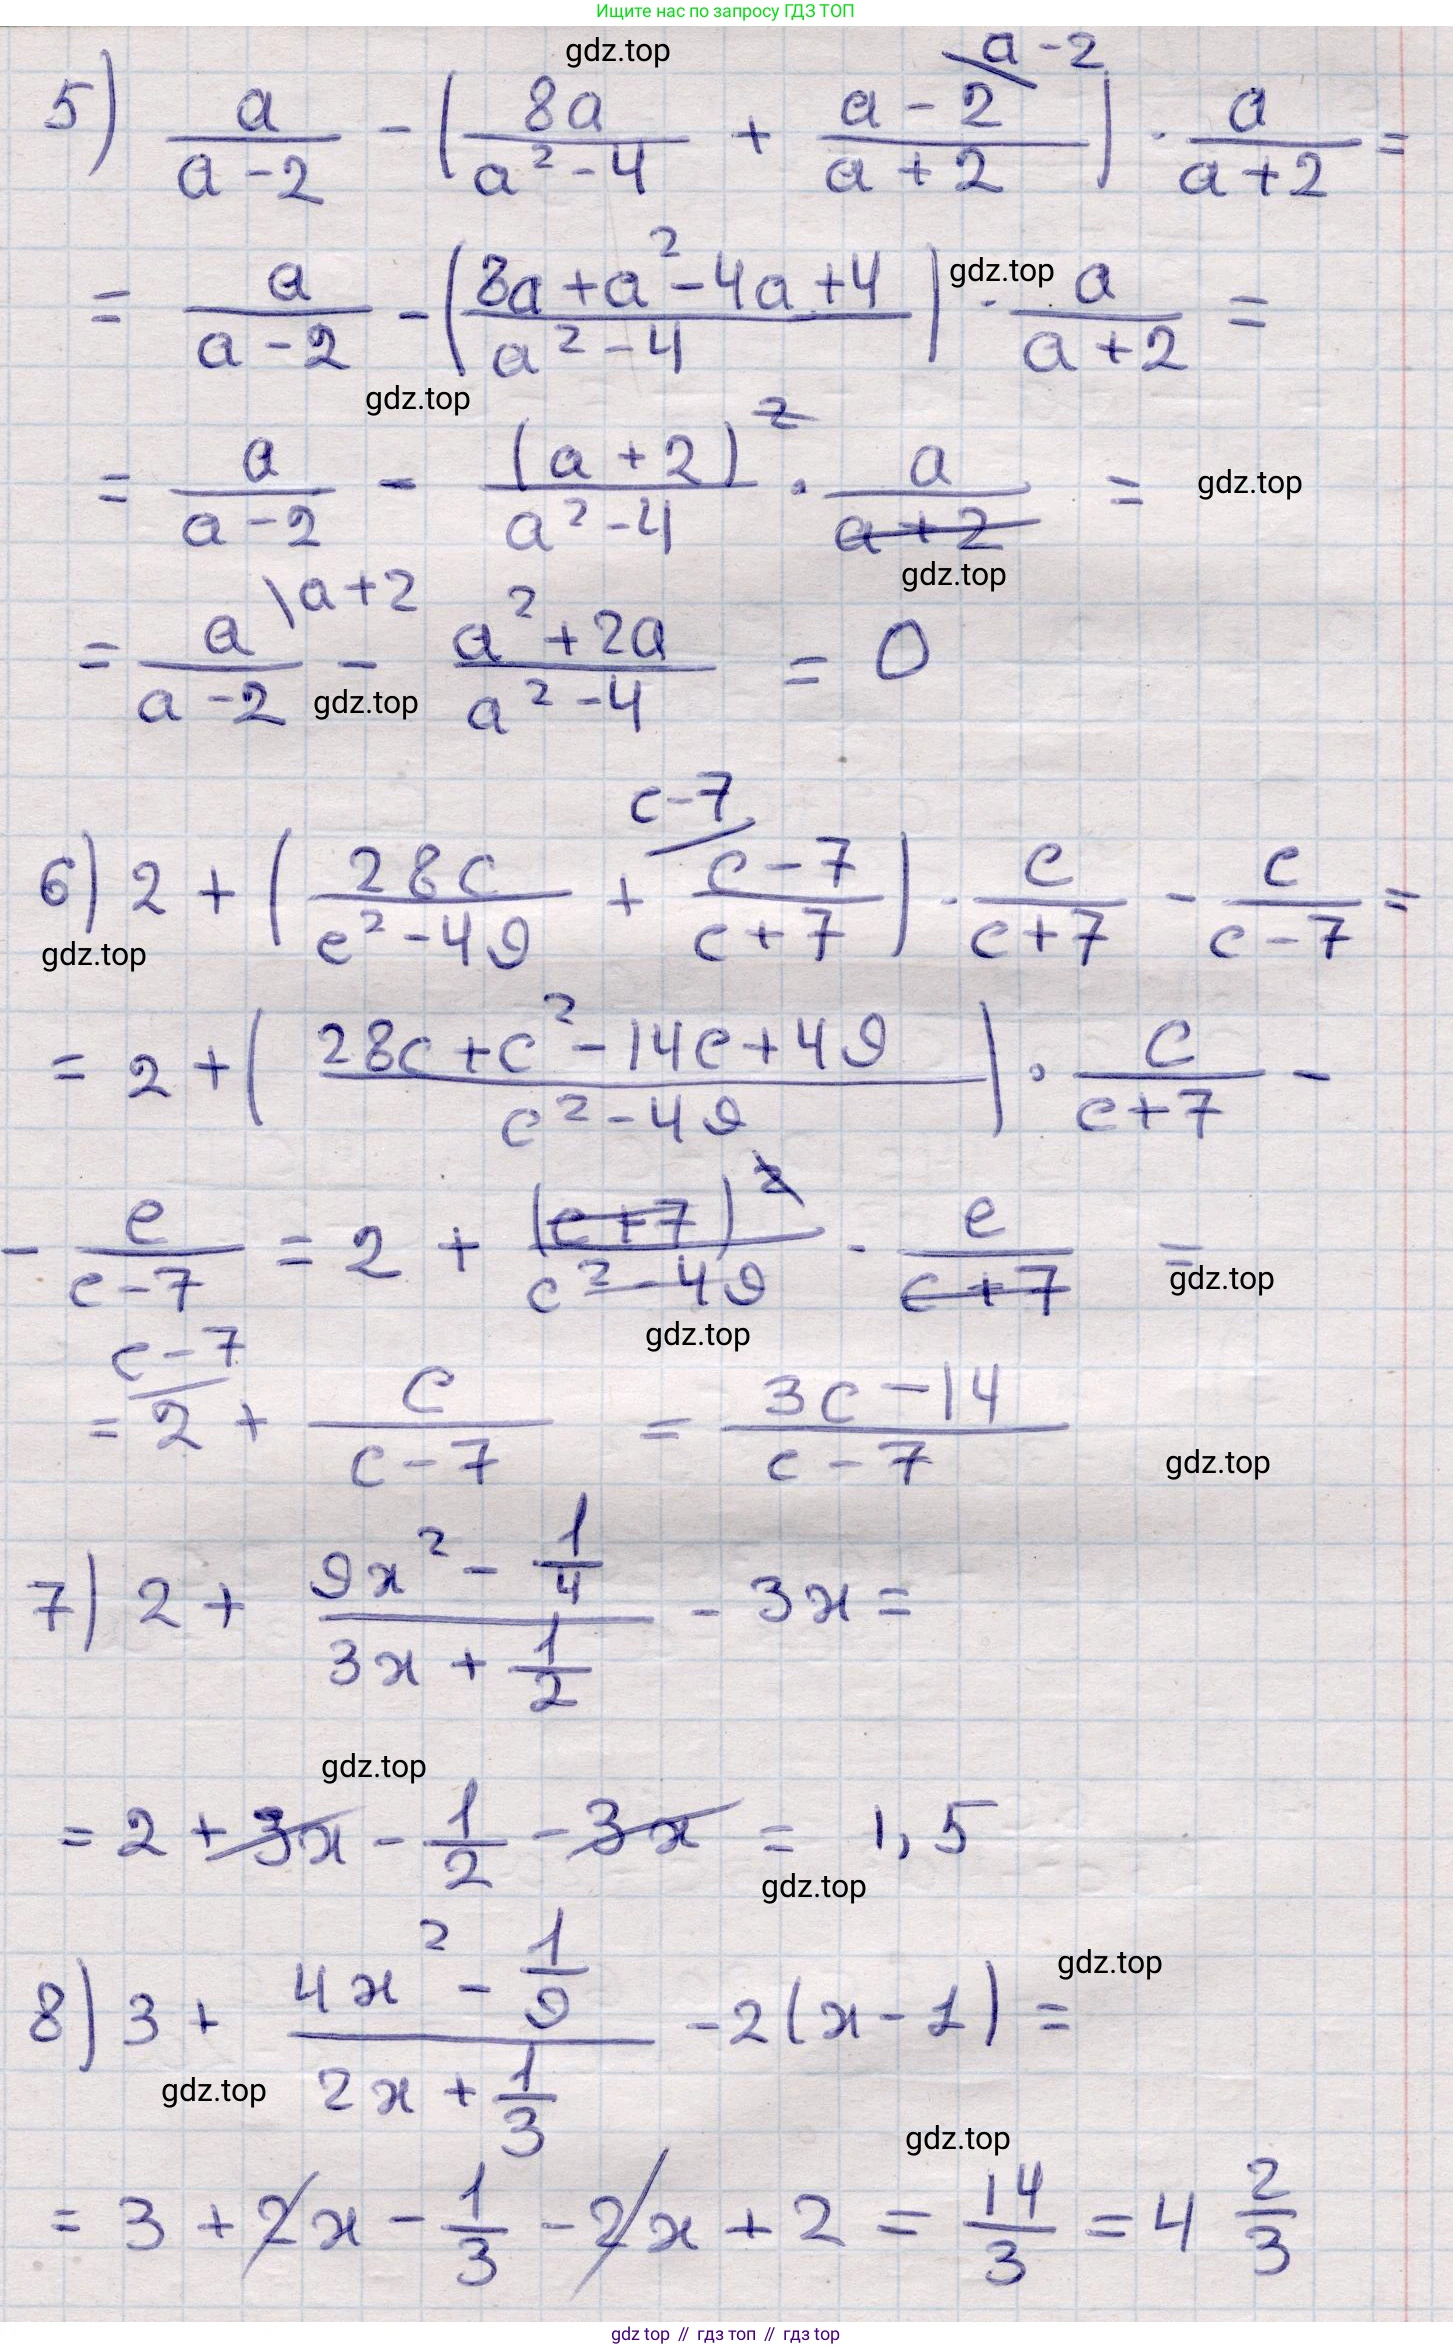 Ищите нас по запросу ГДЗ ТОП
gdz.top
5) a/(a-2) - (8a/(a²-4) + (a-2)/(a+2) \a-2) · a/(a+2) =
= a/(a-2) - ((8a+a²-4a+4)/(a²-4)) · a/(a+2) =
gdz.top
gdz.top
= a/(a-2) - (a+2)²/(a²-4) · a/(a+2) =
gdz.top
gdz.top
= a/(a-2) \a+2 - (a²+2a)/(a²-4) = 0
gdz.top
6) 2 + (28c/(c²-49) + c-7/ (c-7)/(c+7)) · c/(c+7) - c/(c-7) =
gdz.top
= 2 + ((28c+c²-14c+49)/(c²-49)) · c/(c+7) -
- c/(c-7) = 2 + (c+7)²/(c²-49) · c/(c+7) =
gdz.top
gdz.top
= c-7/ 2 + c/(c-7) = (3c-14)/(c-7)
gdz.top
7) 2 + (9x² - 1/4)/(3x + 1/2) - 3x =
gdz.top
= 2 + 3x - 1/2 - 3x = 1,5
gdz.top
8) 3 + (4x² - 1/9)/(2x + 1/3) - 2(x-1) =
gdz.top
gdz.top
gdz.top
= 3 + 2x - 1/3 - 2x + 2 = 14/3 = 4 2/3
gdz top // гдз топ // гдз top